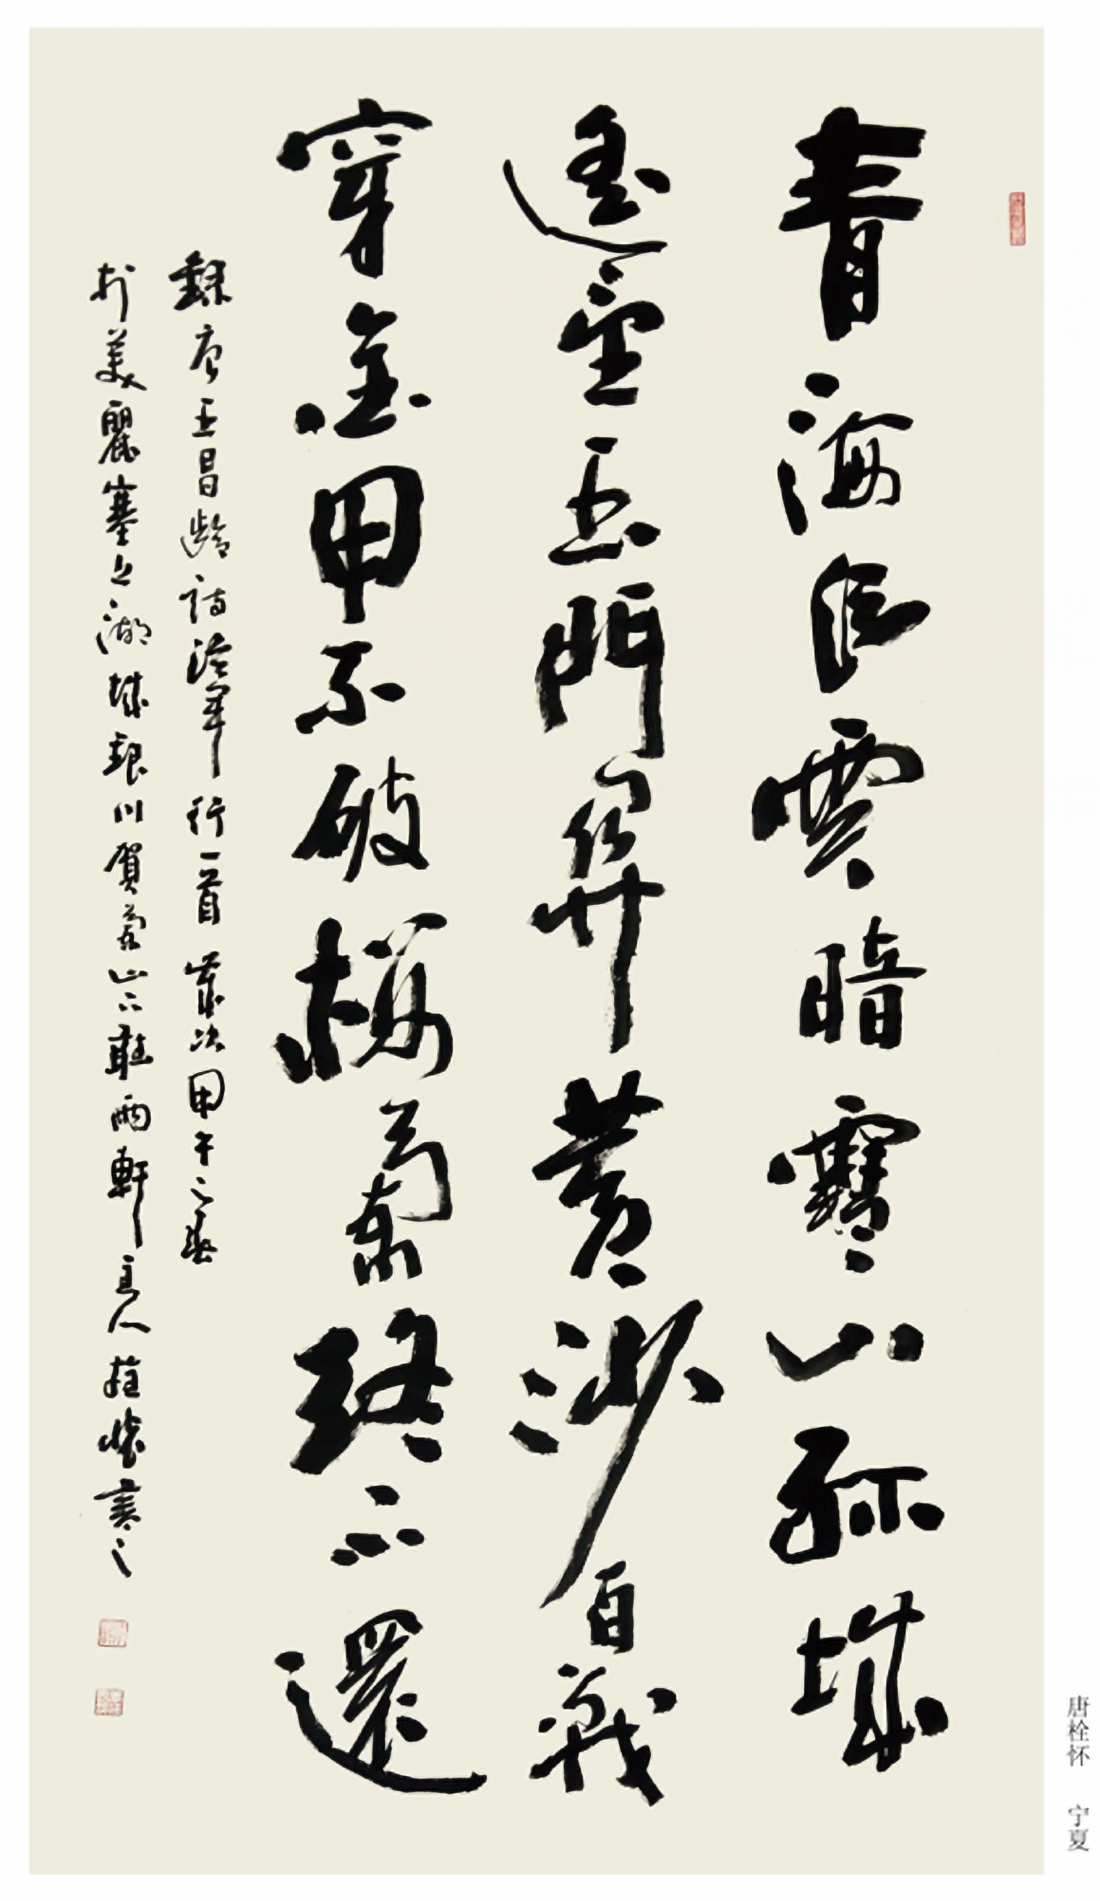 青海長雲暗雪山孤城
遥望玉門關黄沙百戰
穿金甲不破樓蘭終不還
録唐王昌齡詩從軍行一首歲次甲午之春
於美麗塞上湖城銀川賀蘭山下聽雨軒主人栓懷書之
唐栓怀 宁夏